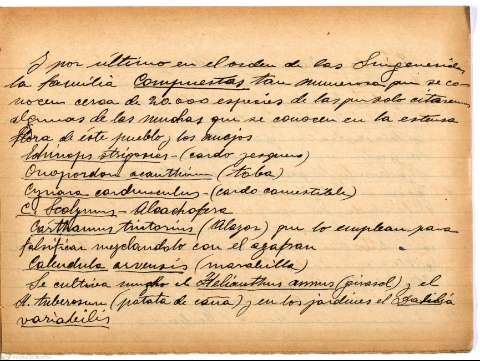 Y por último en el orden de las Singenesidas
la familia Compuestas tan numerosa que se co-
nocen cerca de 20.000 especies de las que solo citaremos
algunas de las muchas que se conocen en la extensa
flora de éste pueblo y los anejos
Echinops strigosus - (cardo yesquero)
Onopordon acanthium (toba)
Cynara cardunculus - (cardo comestible)
C. Scolymus - Alcachofera
Carthamus tintorius (Alazor) que lo emplean para
falsificar mezclandolo con el azafran
Calendula arvensis (maravilla)
Se cultiva mucho el Helianthus annus (girasol) y el
H. tuberosum (patata de caña) y en los jardines el Dahlia
variabilis